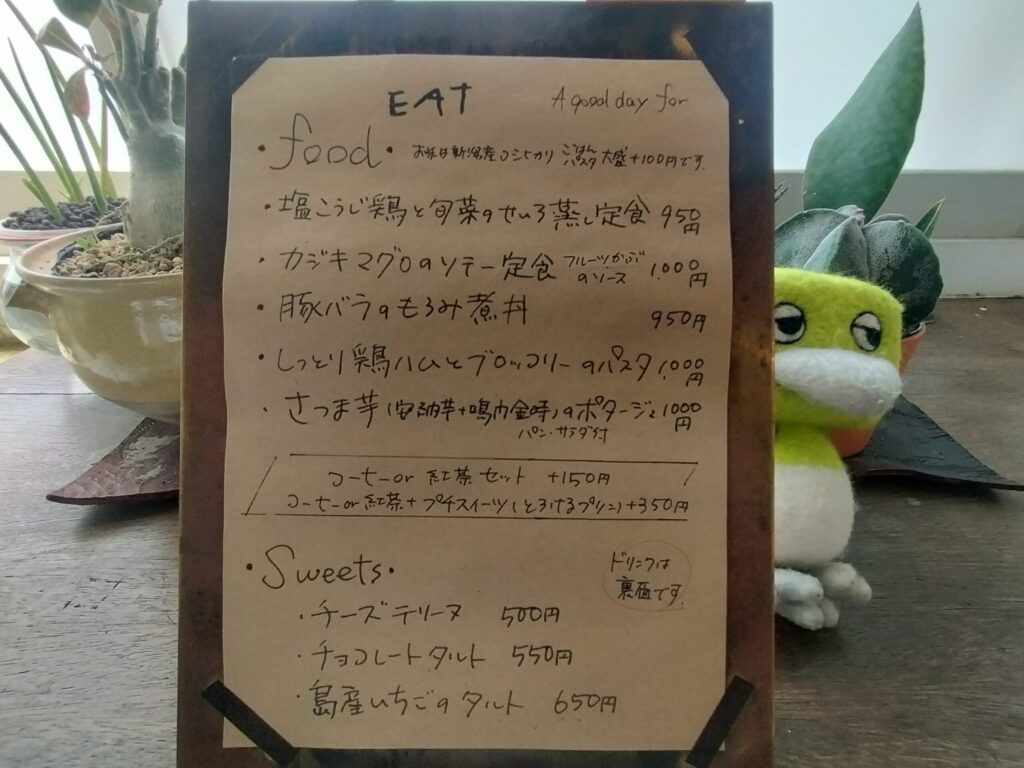 EAT
A good day for
・food・ お米は新潟産コシヒカリ ごはん パスタ 大盛+100円です
・塩こうじ鶏と旬菜のせいろ蒸し定食 950円
・カジキマグロのソテー定食 フルーツかぶのソース 1,000円
・豚バラのもろみ煮丼 950円
・しっとり鶏ハムとブロッコリーのパスタ 1,000円
・さつま芋(安納芋+鳴門金時)のポタージュ 1000円
パン・サラダ付
コーヒーor紅茶セット +150円
コーヒーor紅茶+プチスイーツ(とろけるプリン)+350円
・Sweets・
ドリンクは
裏面です
・チーズテリーヌ 500円
・チョコレートタルト 550円
・島産いちごのタルト 650円